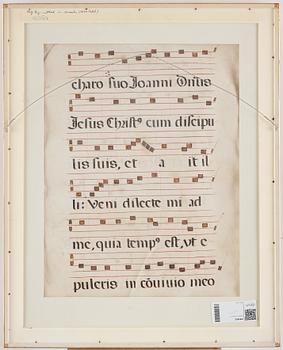 charo suo Joanni Divus
Jesus Christ⁹ cum discipu
lis suis, et a it il
li: Veni dilecte mi ad
me, quia temp⁹ est, vt e
puleris in cōvivio meo